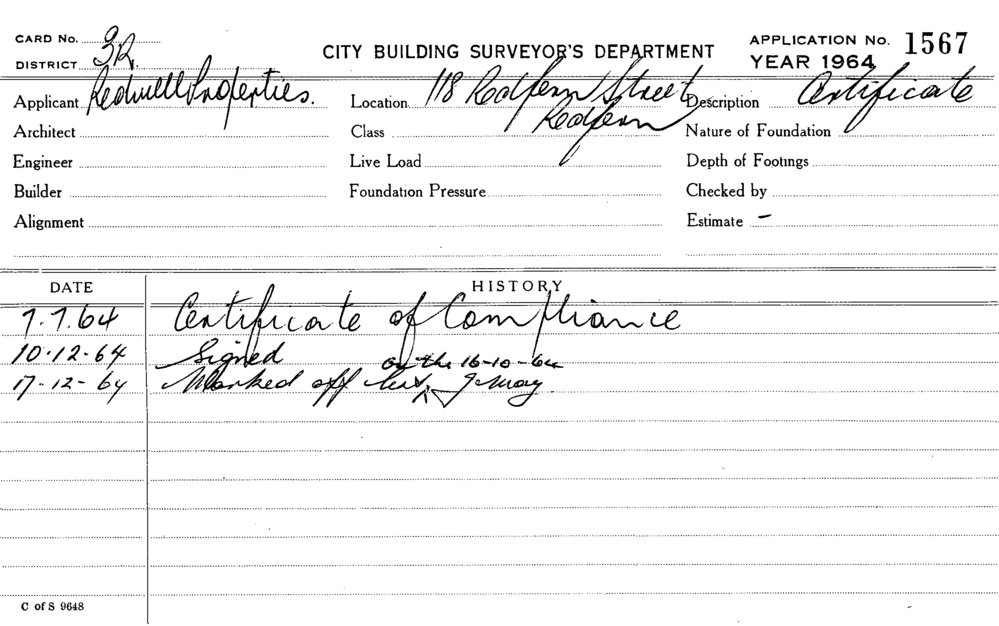 CARD No. 3R
DISTRICT
CITY BUILDING SURVEYOR'S DEPARTMENT
APPLICATION No. 1567
YEAR 1964
Applicant Redwell Properties.
Location 118 Redfern Street
Redfern
Description Certificate
Architect
Class
Nature of Foundation
Engineer
Live Load
Depth of Footings
Builder
Foundation Pressure
Checked by
Alignment
Estimate -
DATE
HISTORY
7.7.64 Certificate of Compliance
10.12.64 Signed
on the 16-10-64
17-12-64 Marked off
C of S 9648